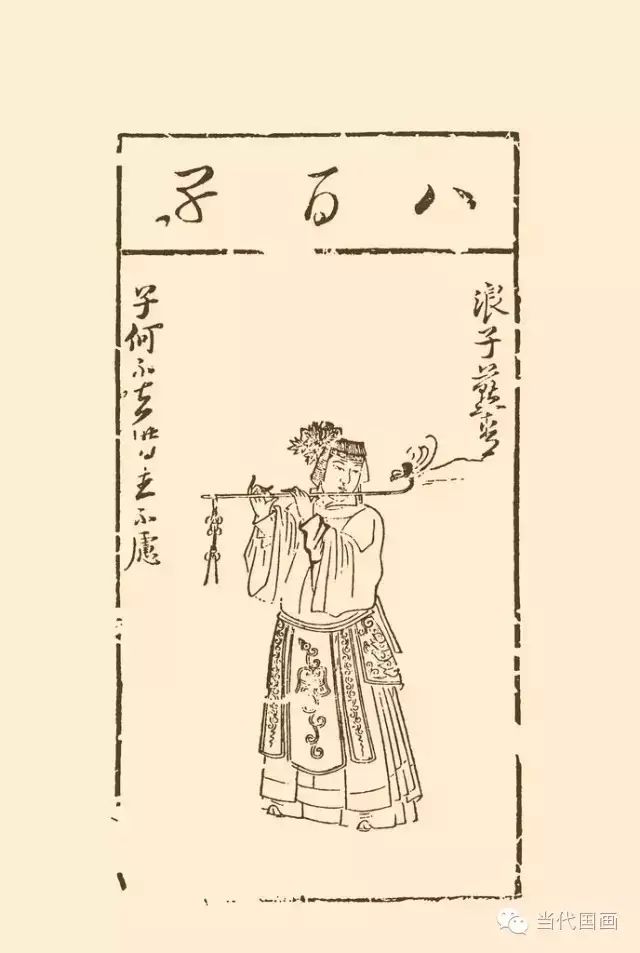 八百子
浪子燕青
子何不主不慮
当代国画